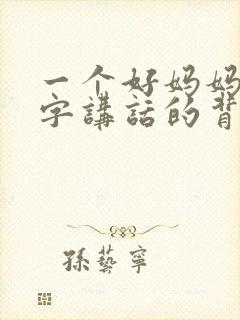 一个好妈妈
字講話的背
孫藝寧